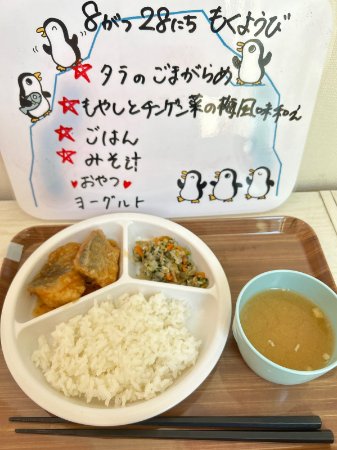 8がつ 28にち もくようび
タラのごまがらめ
もやしとチンゲン菜の梅風味和え
ごはん
みそ汁
おやつ
ヨーグルト